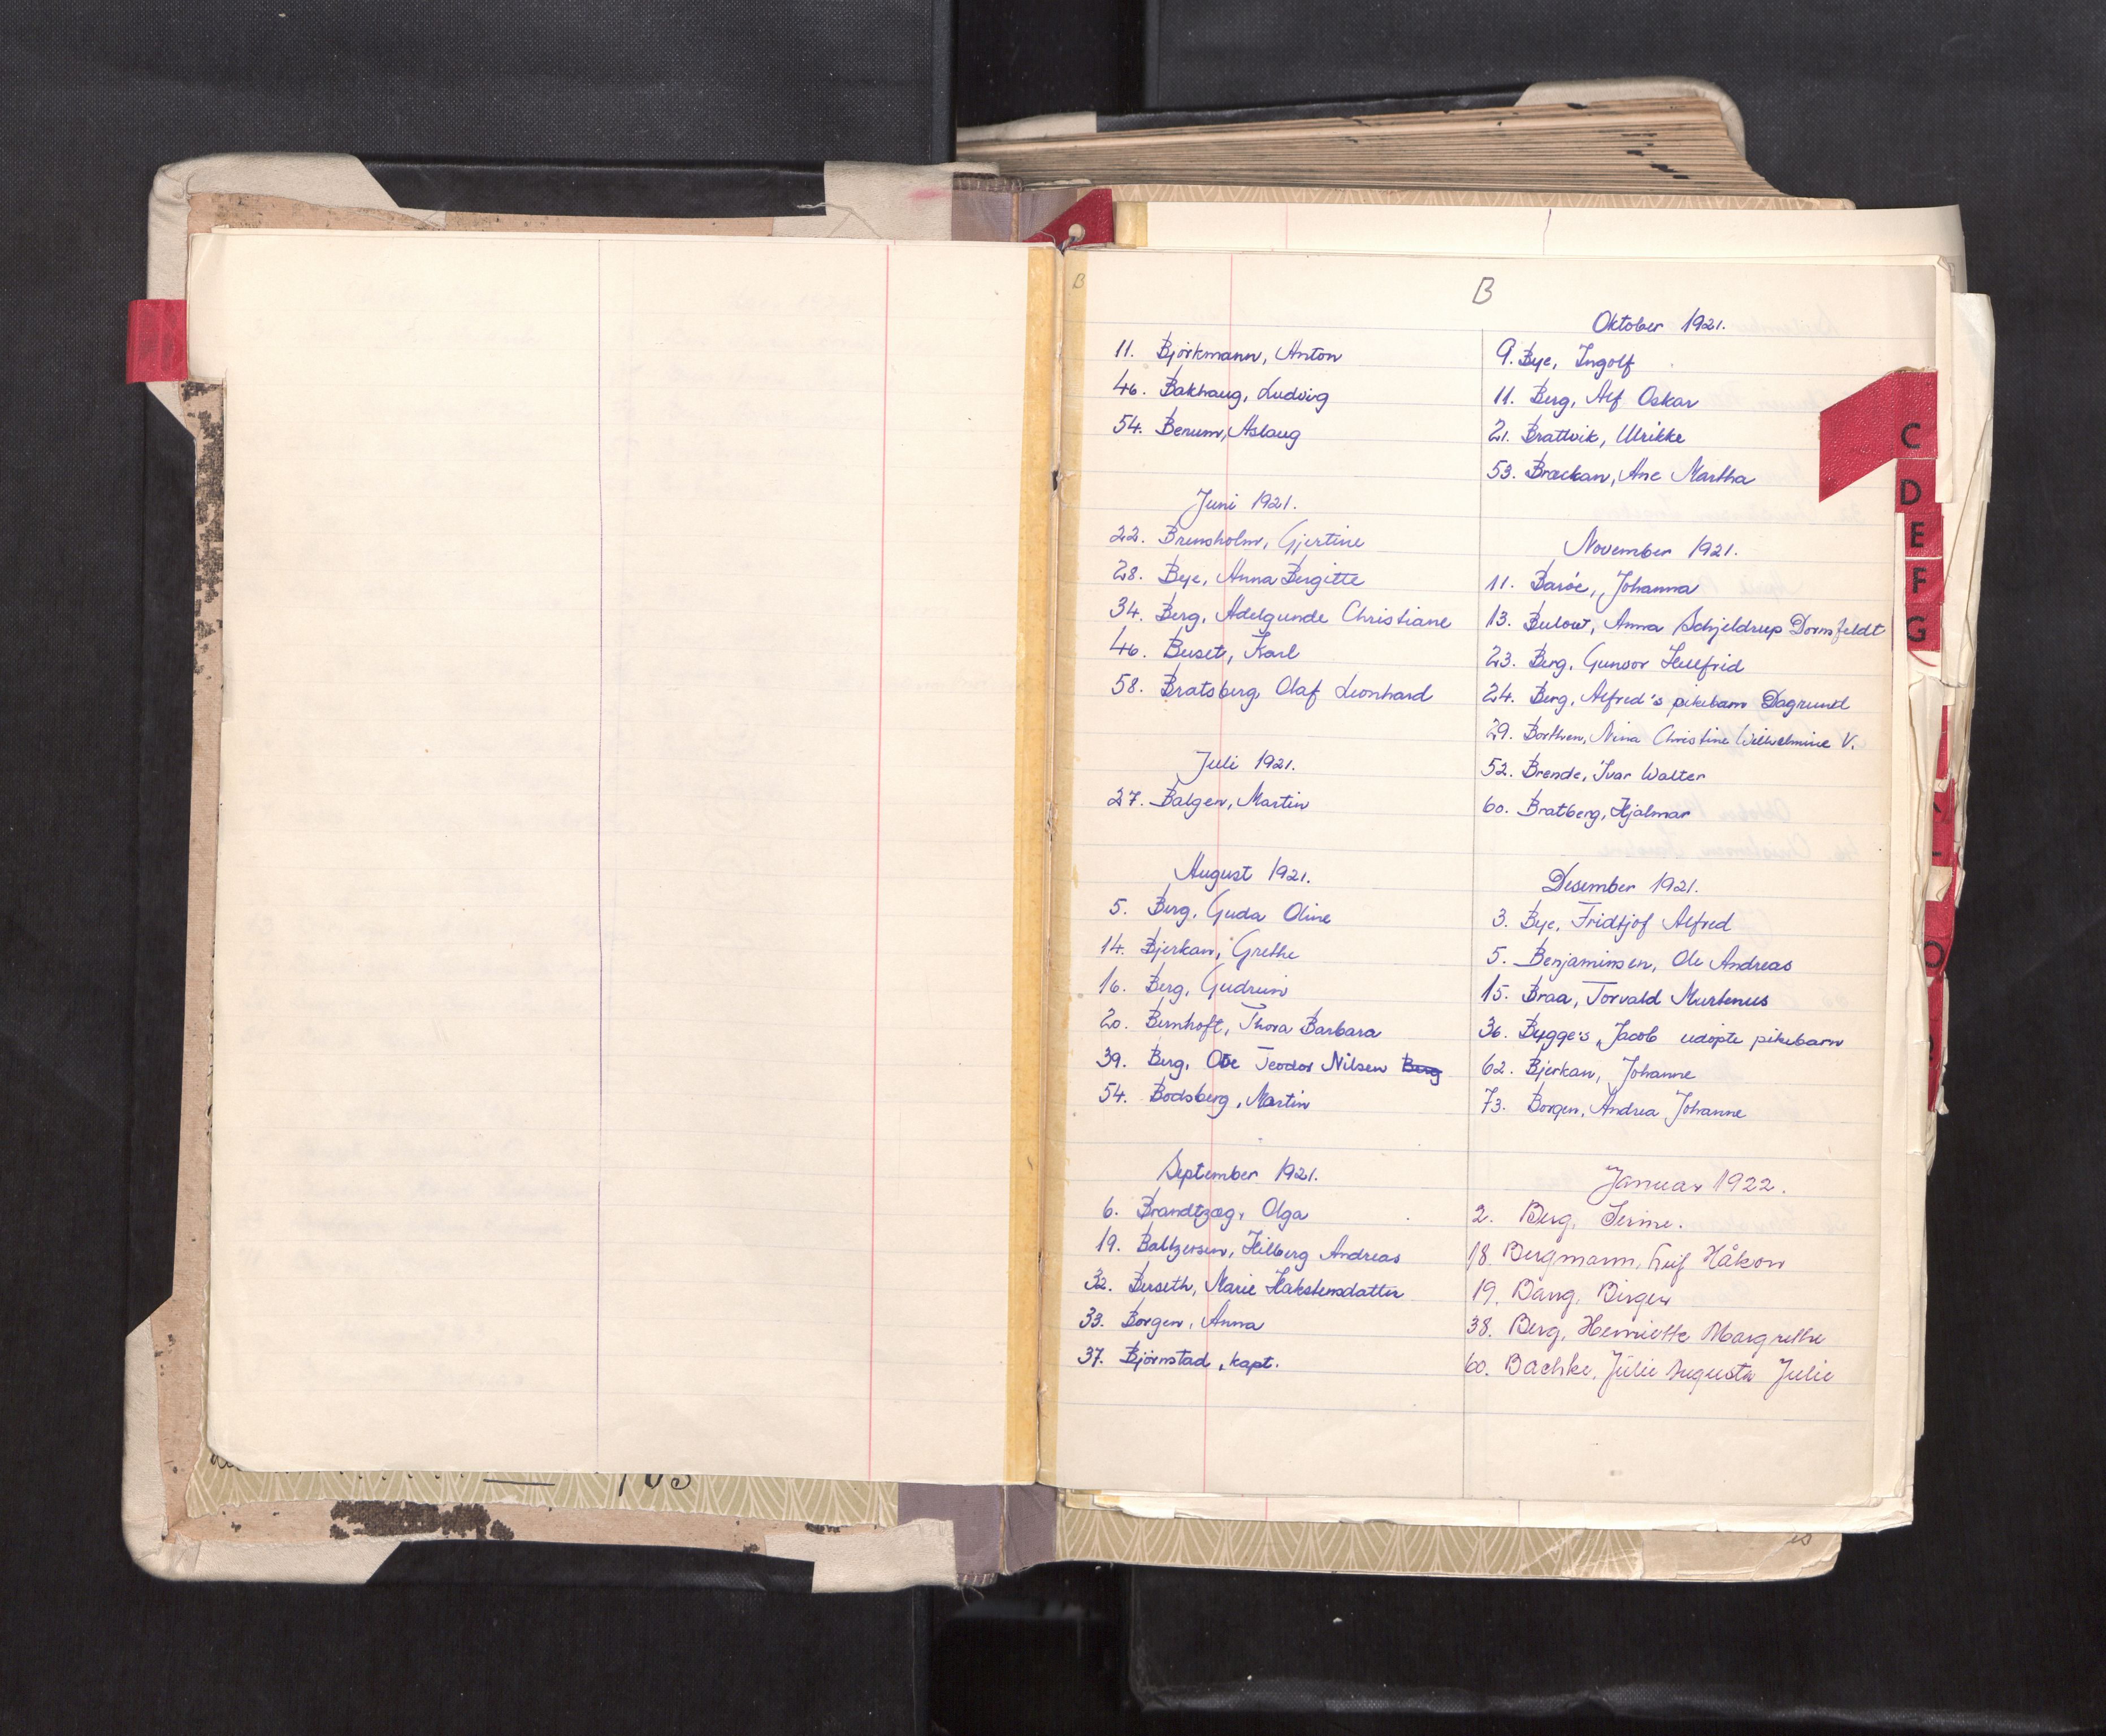 B
B
11. Björkmann, Anton
46. Bakhaug, Ludvig
54. Berum, Aslaug
Juni 1921.
22. Brensholm, Gjertine
28. Bye, Anna Bergitte
34. Berg, Adelgunde Christiane
46. Buset, Karl
58. Bratsberg, Olaf Leonhard
Juli 1921.
27. Balgen, Martin
August 1921.
5. Berg, Guda Oline
14. Bjerkan, Grethe
16. Berg, Gudrun
20. Bernhoft, Thora Barbara
39. Berg, Ole Teodor Nilsen Berg
54. Bodsberg, Martin
September 1921.
6. Brandtzæg, Olga
19. Baltzersen, Hilberg Andreas
32. Berseth, Marie Hakstensdatter
33. Borgen, Anna
37. Björnstad, kapt.
Oktober 1921.
9. Bye, Ingolf
11. Berg, Alf Oskar
21. Brattvik, Ulrikke
53. Brækan, Ane Martha
November 1921.
11. Baröe, Johanna
13. Bulow, Anna Schjeldrup Dornsfeldt
23. Berg, Gunvor Hallfrid
24. Berg, Alfred's pikebarn Dagrunn
29. Borthen, Nina Christine Wilhelmine V.
52. Brende, Ivar Walter
60. Bratberg, Hjalmar
Desember 1921.
3. Bye, Fridtjof Alfred
5. Benjaminsen, Ole Andreas
15. Braa, Torvald Murtenus
36. Bygge's, Jacob udöpte pikebarn
62. Bjerkan, Johanne
73. Borgen, Andrea Johanne
Januar 1922.
2. Berg,
18. Bergmann, Leif Håkon
19. Bang, Birger
38. Berg, Henriette Margrethe
60. Bachke, Julie Augusta Julie
C
D
E
F
G
O